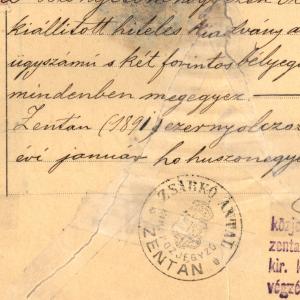 kiállított hiteles kiadvány a
ügyszámú s két forintos bélyeg
mindenben megegyez.
Zentán (1891) ezernyolczsz
évi január hó huszonegy
ZSARKÓ ANTAL
KIR. KÖZJEGYZŐ
ZENTÁN
közj
zenta
kir. k
végzé